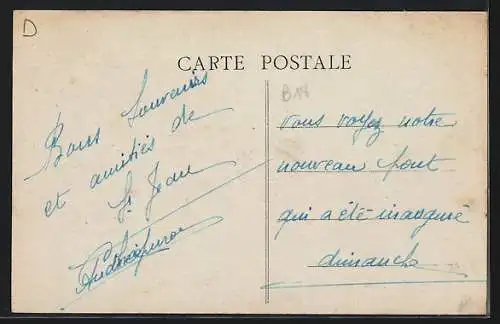 D
CARTE POSTALE
B14
Bons Souvenirs
et amitiés de
St Jean
vous voyez notre
nouveau pont
qui a été inauguré
dimanche